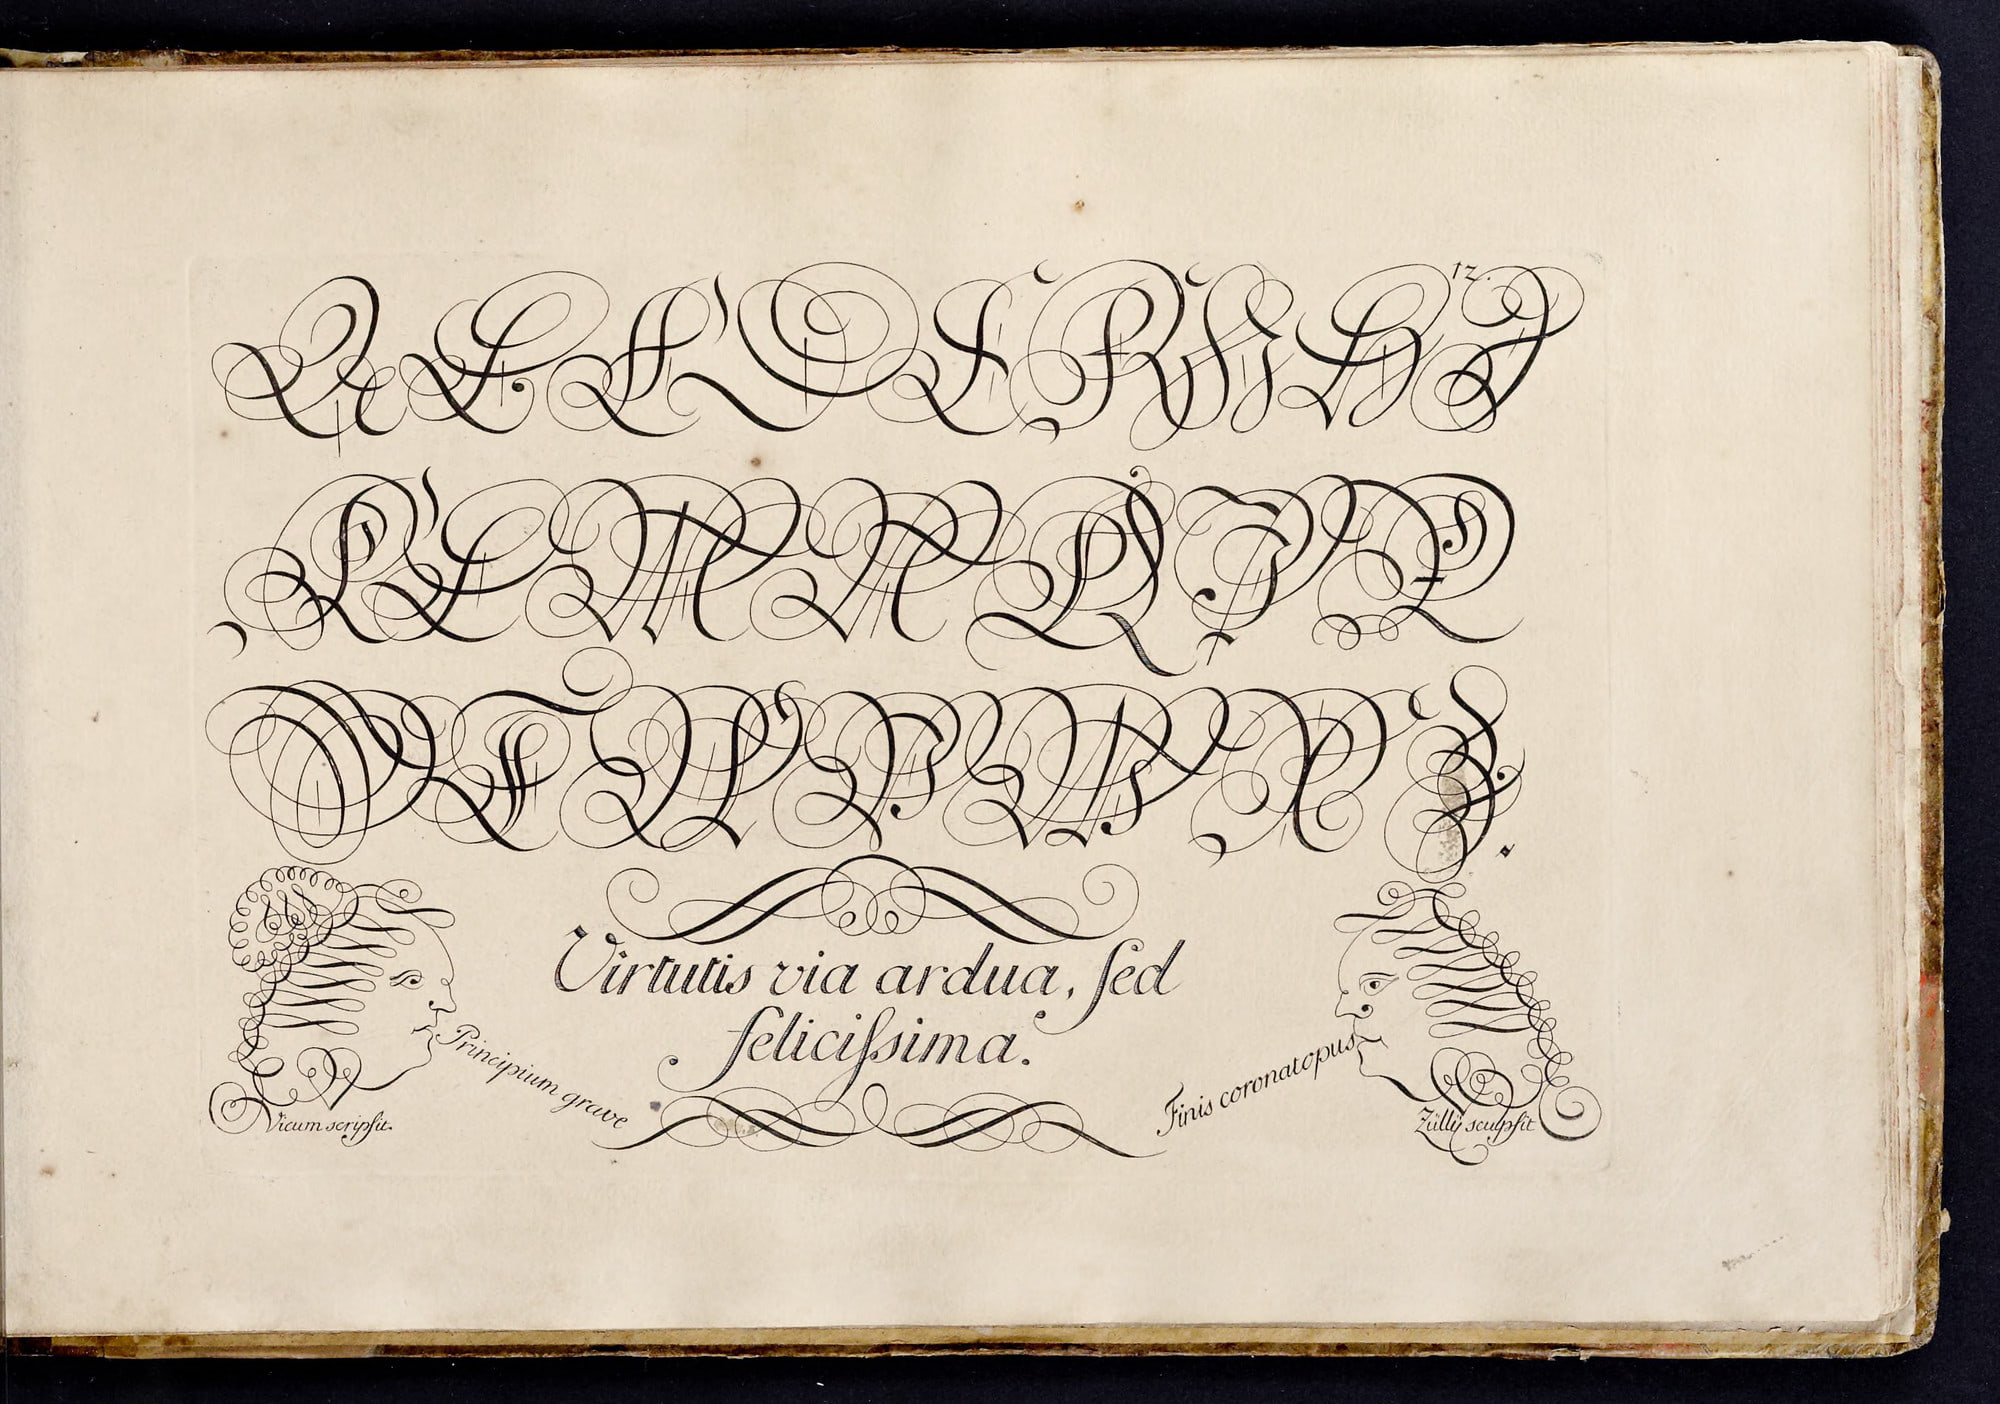 12.
A C D E H J
K L M N
T W X Z.
Virtutis via ardua, sed
felicissima.
Principium grave
Finis coronat opus
Vicum scripsit.
Zülly sculpsit